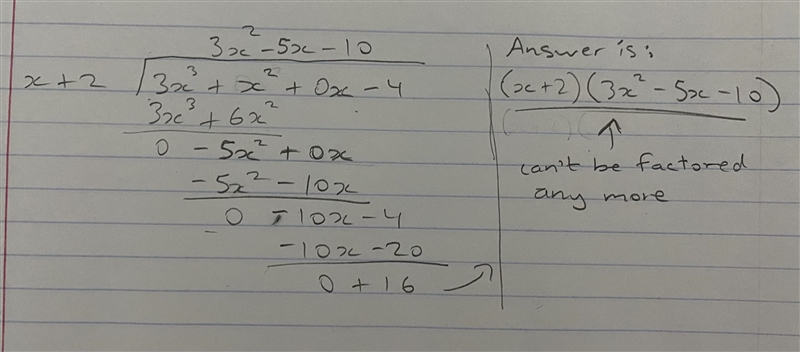 3x² - 5x - 10
x + 2 3x³ + x² + 0x - 4
3x³ + 6x²
0 - 5x² + 0x
- 5x² - 10x
0 - 10x - 4
- 10x - 20
0 + 16
Answer is:
(x+2)(3x² - 5x - 10)
can't be factored
any more